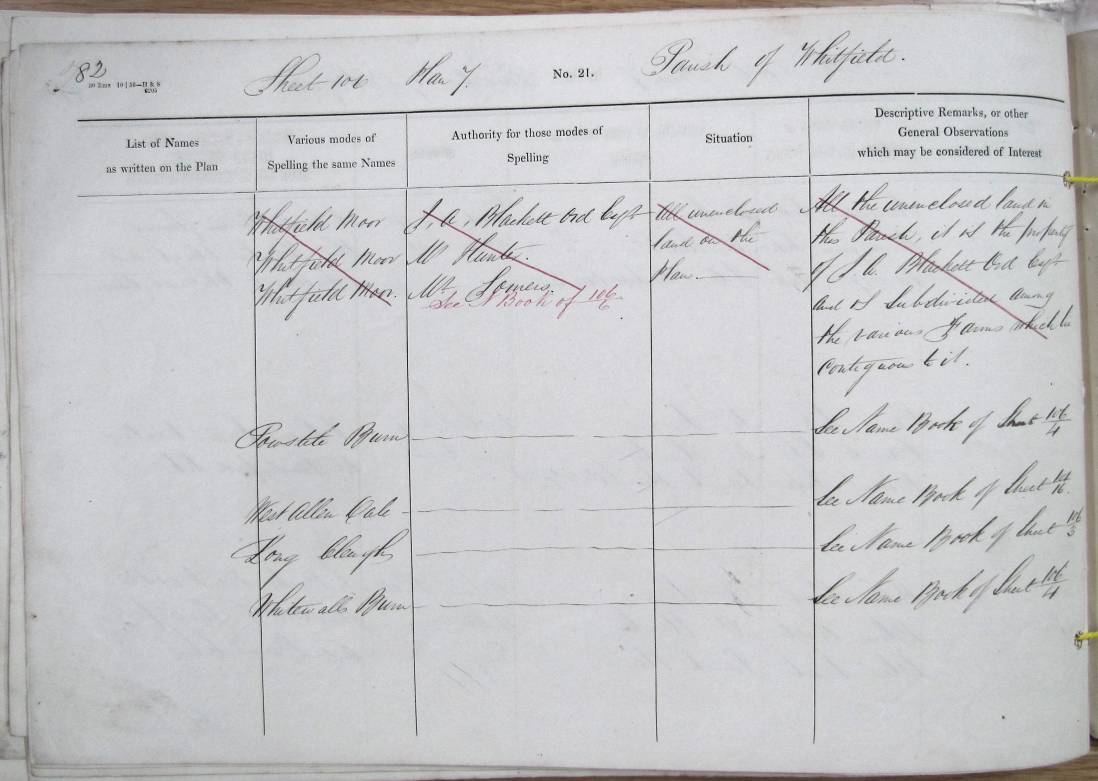 82
Sheet 106 Plan 7. No. 21. Parish of Whitfield.
List of Names
as written on the Plan
Various modes of
Spelling the same Names
Authority for those modes of
Spelling
Situation
Descriptive Remarks, or other
General Observations
which may be considered of Interest
Whitfield Moor J. A. Blackett Ord Esqr All unenclosed All the unenclosed land in
Whitfield Moor Mr Hunter. land on the this Parish, it is the property
Whitfield Moor. Mr. Somers. Plan. of J. A. Blackett Ord Esqr
See N Book of 106/6 and is subdivided among
the various Farms which lie
contiguous to it.
Powstile Burn See Name Book of Sheet 106/4
West Allen Dale See Name Book of Sheet
Long Cleugh See Name Book of Sheet 106/3
Whitewalls Burn See Name Book of Sheet 106/4